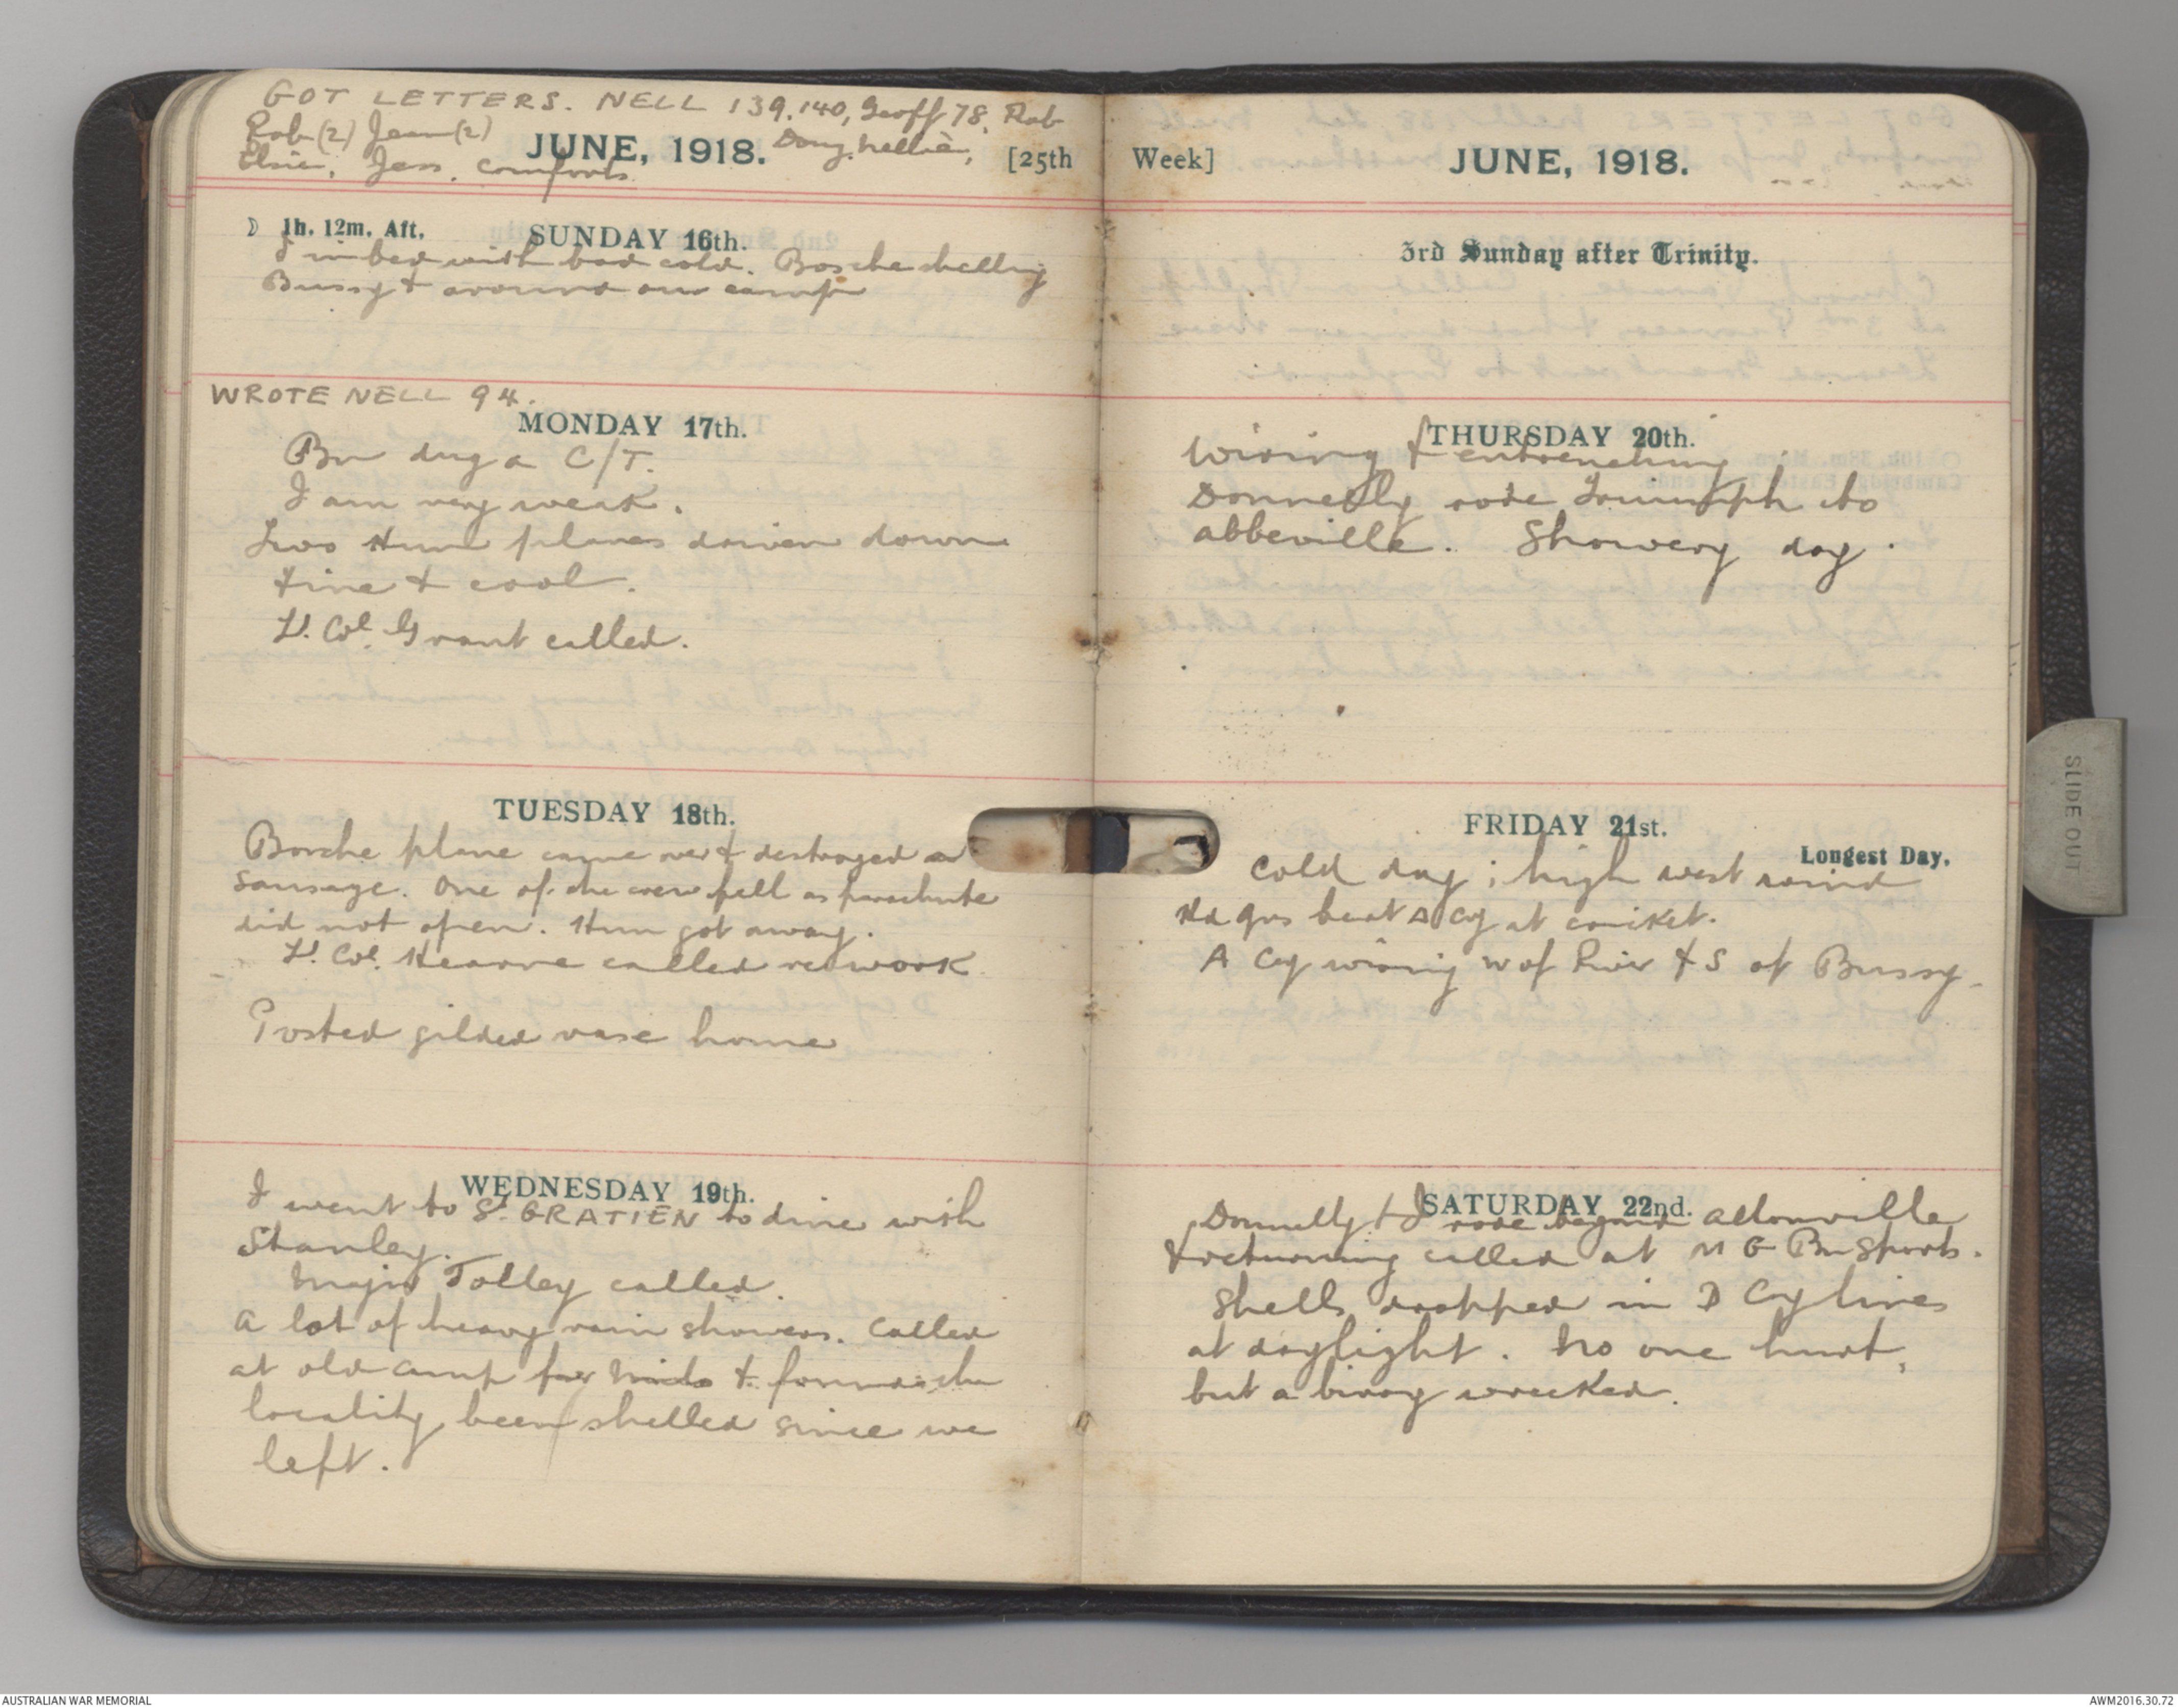 GOT LETTERS. NELL 139, 140, Geoff 78, Rob
Rob (2) Jean (2)
Elsie, Jess, Comforts
Doug, Nellie,
JUNE, 1918.
[25th
☽ 1h. 12m. Aft.
SUNDAY 16th.
I in bed with bad cold. Bosche shelling
Bussy & around our camp
WROTE NELL 94.
MONDAY 17th.
Bn dug a C/T.
I am very weak.
Two Hun planes driven down
Fine & cool.
Lt. Col. Grant called.
TUESDAY 18th.
Bosche plane came over & destroyed a
sausage. One of the crew fell as parachute
did not open. Hun got away.
Lt. Col. Hearne called re work
Posted gilded vase home
WEDNESDAY 19th.
I went to St. GRATIEN to dine with
Stanley.
Major Tolley called.
A lot of heavy rain showers. Called
at old camp for & found the
locality been shelled since we
left.
Week]
JUNE, 1918.
3rd Sunday after Trinity.
THURSDAY 20th.
Wiring & entrenching
Donnelly rode Triumph to
Abbeville. Showery day.
FRIDAY 21st.
Longest Day.
Cold day; high west wind
Hd qrs beat A Coy at cricket.
A Coy wiring W of River & S of Bussy.
SATURDAY 22nd.
Donnelly & I rode beyond Allonville
& returning called at M G Bn Sports.
Shells dropped in D Coy lines
at daylight. No one hurt,
but a bivvy wrecked.
SLIDE OUT
AUSTRALIAN WAR MEMORIAL
AWM2016.30.72